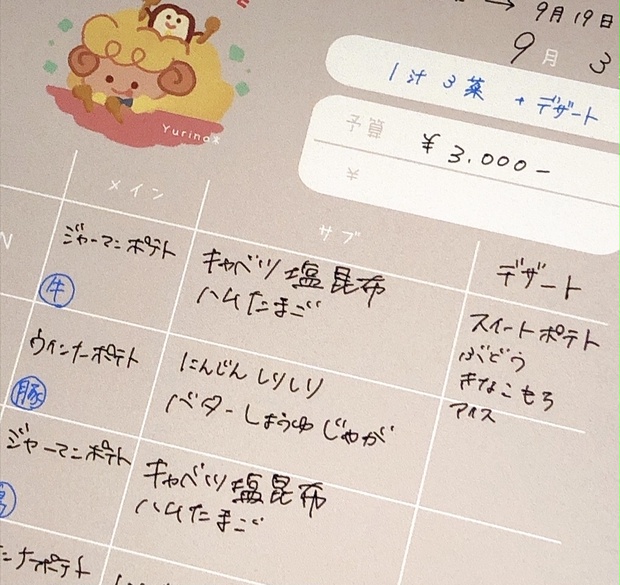 → 9月19日
9月 3
1汁3菜 + デザート
予算 ¥3.000-
¥
Yurina
メイン サブ
N
ジャーマンポテト キャベツ塩昆布 デザート
牛 ハムたまご スイートポテト
ウインナーポテト にんじんしりしり ぶどう
豚 バターしょうゆじゃが きなこもち
アイス
ジャーマンポテト キャベツ塩昆布
ハムたまご
ンナーポテト